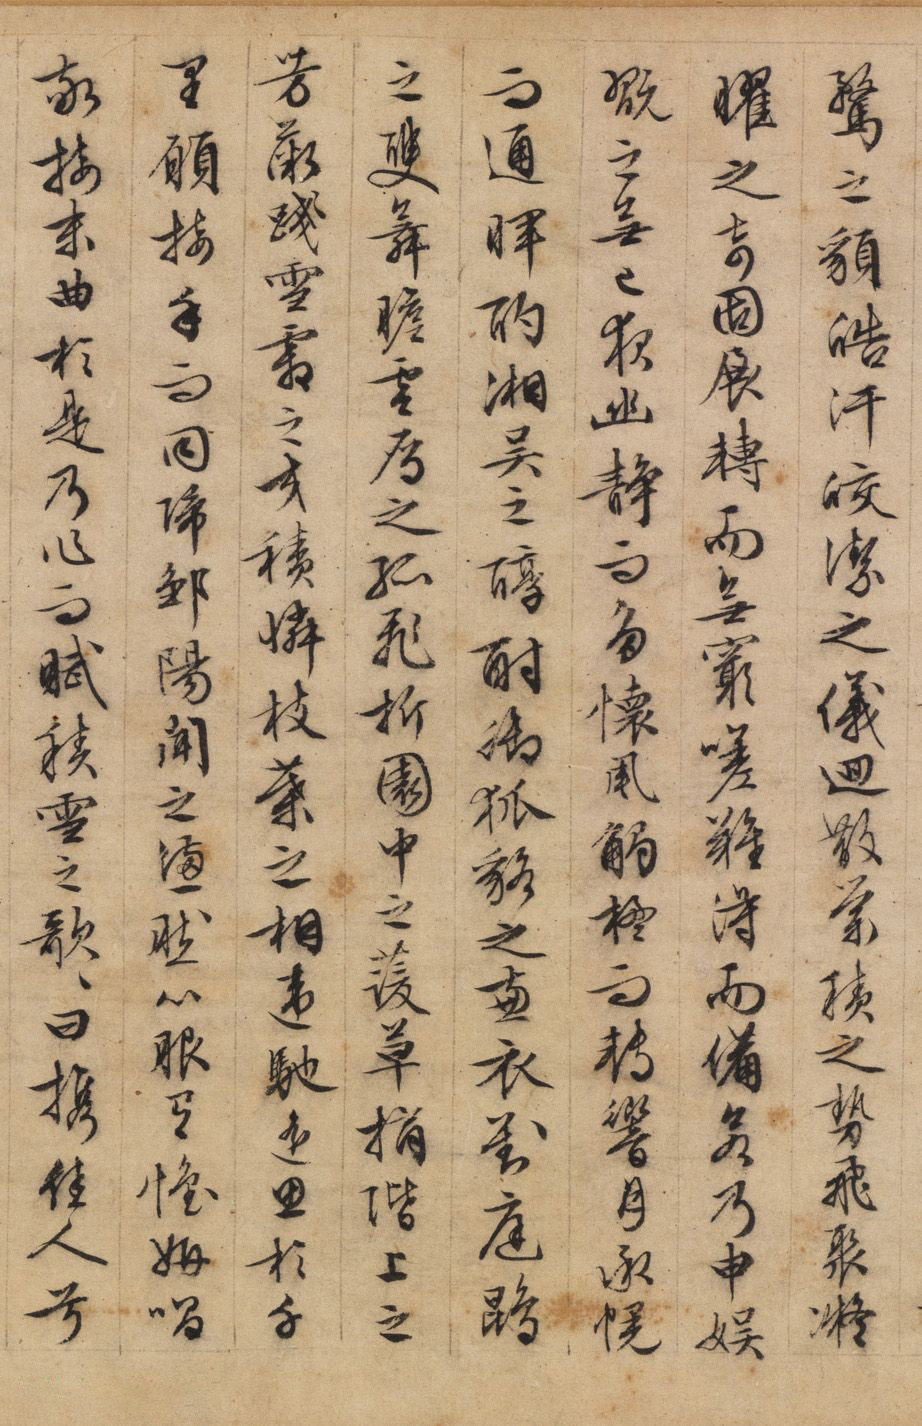 騖之貌皓汗皎潔之儀迴散縈積之勢飛聚凝
曜之奇固展轉而無窮嗟難得而備若乃申娛
翫之無已夜幽靜而多懷風觸楹而轉響月承幌
而通暉酌湘吳之醇酎御狐貉之兼衣對庭鵾
之雙舞瞻雲雁之孤飛折園中之蘐草摘階上之
芳薇踐雪霜之交積憐枝葉之相違馳遙思於千
里願接手而同歸鄒陽聞之懣然心服有懷妍唱
敬接末曲於是乃作而賦積雪之歌々曰攜佳人兮